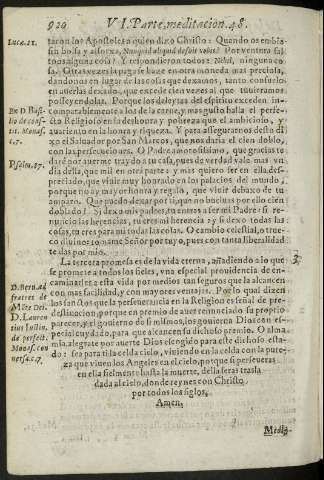 920 VI. Parte, meditacion. 48.
Lucæ. 22.
taron los Apostoles a quien dixo Christo: Quando os embie
sin bolsa y alforxa, Nunquid aliquid defuit vobis? Por ventura fal
toos alguna cosa? Y respondieron todos: Nihil, ninguna co
sa. Otras vezes la paga se haze en otra moneda mas preciosa,
dandonos en lugar de las cosas que dexamos, tanto consuelo
en auerlas dexado, que excede cien vezes al que tuuieramos
posseyendolas. Porque los deleytes del espiritu exceden in-
D. Basi
lio de
Monast.
c. 7.
comparablemente a los de la carne, y mas gusto halla el perfe-
cto Religioso en la deshonra y pobreza que el ambicioso, y
auariento en la honra y riqueza. Y para assegurarnos desto di
xo el Saluador por San Marcos, que nos daria el cien doblo,
con las persecuciones. O Padre amorosissimo, que gracias te
Psalm. 87.
darè por auerme traydo a tu casa, pues de verdad vale mas vn
dia della, que mil en otra parte y mas quiero ser en ella des-
preciado, que viuir muy honrado en los palacios del mundo,
porque no ay mayor honra y regalo, que viuir debaxo de tu
amparo. Que puedo dexar por ti, que no bueluas por ello cien
doblado? Si dexo mis padres, tu entras a ser mi Padre: si re-
nuncio las herencias, tu eres mi herencia y si dexo todas las
cosas, tu eres para mi todas las cosas. O cambio celestial, o true-
co diuino: tomame Señor por tuyo, pues con tanta liberalidad
te das por mio.
3
La tercera promesa es de la vida eterna, añadiendo a lo que
se promete a todos los fieles, vna especial prouidencia de en-
caminarles a esta vida por medios tan seguros que la alcancen
D. Bern. ad
fratres de
Môte Dei.
D. Lauren
tius Iustin.
de perfect.
Monast. con
uers. c. 7.
con mas facilidad, y con mayores ventajas. Por lo qual dizen
los santos que la perseuerancia en la Religion es señal de pre-
destinacion, porque en premio de auer renunciado su proprio
parecer, y el gouierno de si mismos, los gouierna Dios con es-
pecial cuydado para que alcancen su dichoso premio. O alma
mia, alegrate por auerte Dios escogido para este dichoso esta-
do: sea para ti la celda cielo, viuiendo en la celda con la pure-
za que viuen los Angeles en el cielo, porque si perseueras
en ella fielmente hasta la muerte, della seras trasla
dada al cielo, donde reynes con Christo
por todos los siglos,
Amen.
Medi-